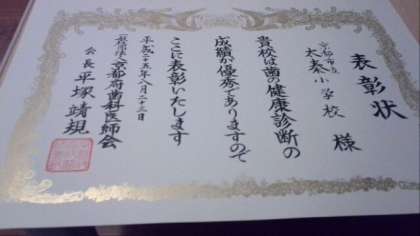 表彰状
京都市立
太秦小学校 様
貴校は歯の健康診断の
成績が優秀でありますので
ここに表彰いたします
平成二十五年八月二十三日
一般社団法人 京都府歯科医師会
会長 平塚靖規